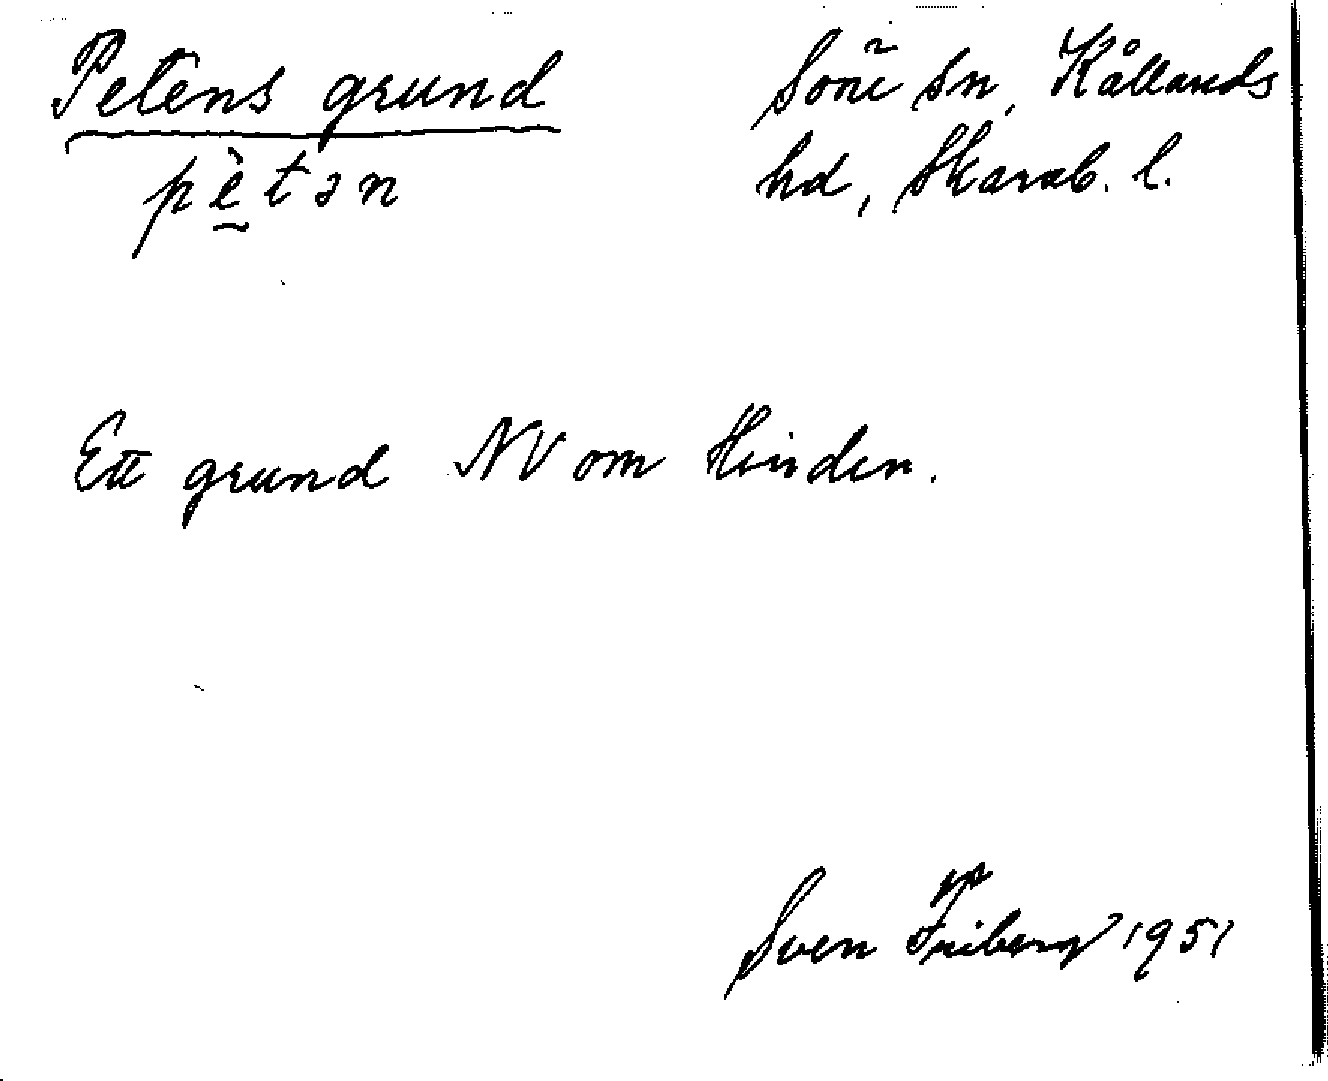 Petens grund
Soñe sn, Kållands
hd, Skarab. l.
pètən
Ett grund NV om Hinden.
Sven Friberg 1951